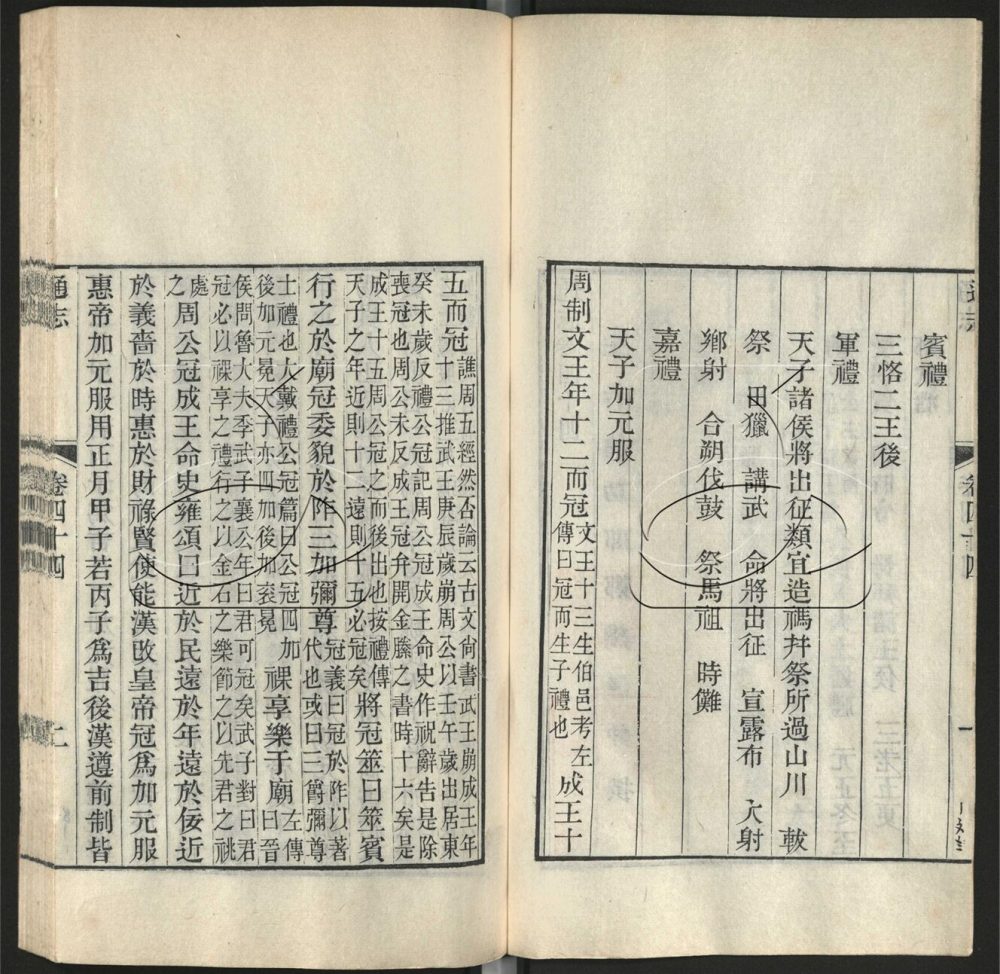 賓禮
三恪二王後
軍禮
天子諸侯將出征類宜造禡并祭所過山川 軷
祭 田獵 講武 命將出征 宣露布 大射
鄉射 合朔伐鼓 祭馬祖 時儺
嘉禮
天子加元服
周制文王年十二而冠文王十三生伯邑考左
傳曰冠而生子禮也成王十
五而冠譙周五經然否論云古文尚書武王崩成王年
十三推武王庚辰歲崩周公以壬午歲出居東
癸未歲反禮公冠記周公冠成王命史作祝辭告是除
喪冠也周公未反成王冠弁開金縢之書時十六矣是
成王十五周公冠之而後出也按禮傳
天子之年近則十二遠則十五必冠矣將冠筮日筮賓
行之於廟冠委貌於阼三加彌尊冠義曰冠於阼以著
代也或曰三醮彌尊
士禮也大戴禮公冠篇曰公冠四加
後加元冕天子亦四加後加衮冕祼享樂于廟左傳
曰晉
侯問魯大夫季武子襄公年曰君可冠矣武子對曰君
冠必以祼享之禮行之以金石之樂節之以先君之祧
處
之周公冠成王命史雍頌曰近於民遠於年遠於佞近
於義嗇於時惠於財祿賢使能漢改皇帝冠為加元服
惠帝加元服用正月甲子若丙子為吉後漢遵前制皆
通志
卷四十四
二
通志
卷四十四
一